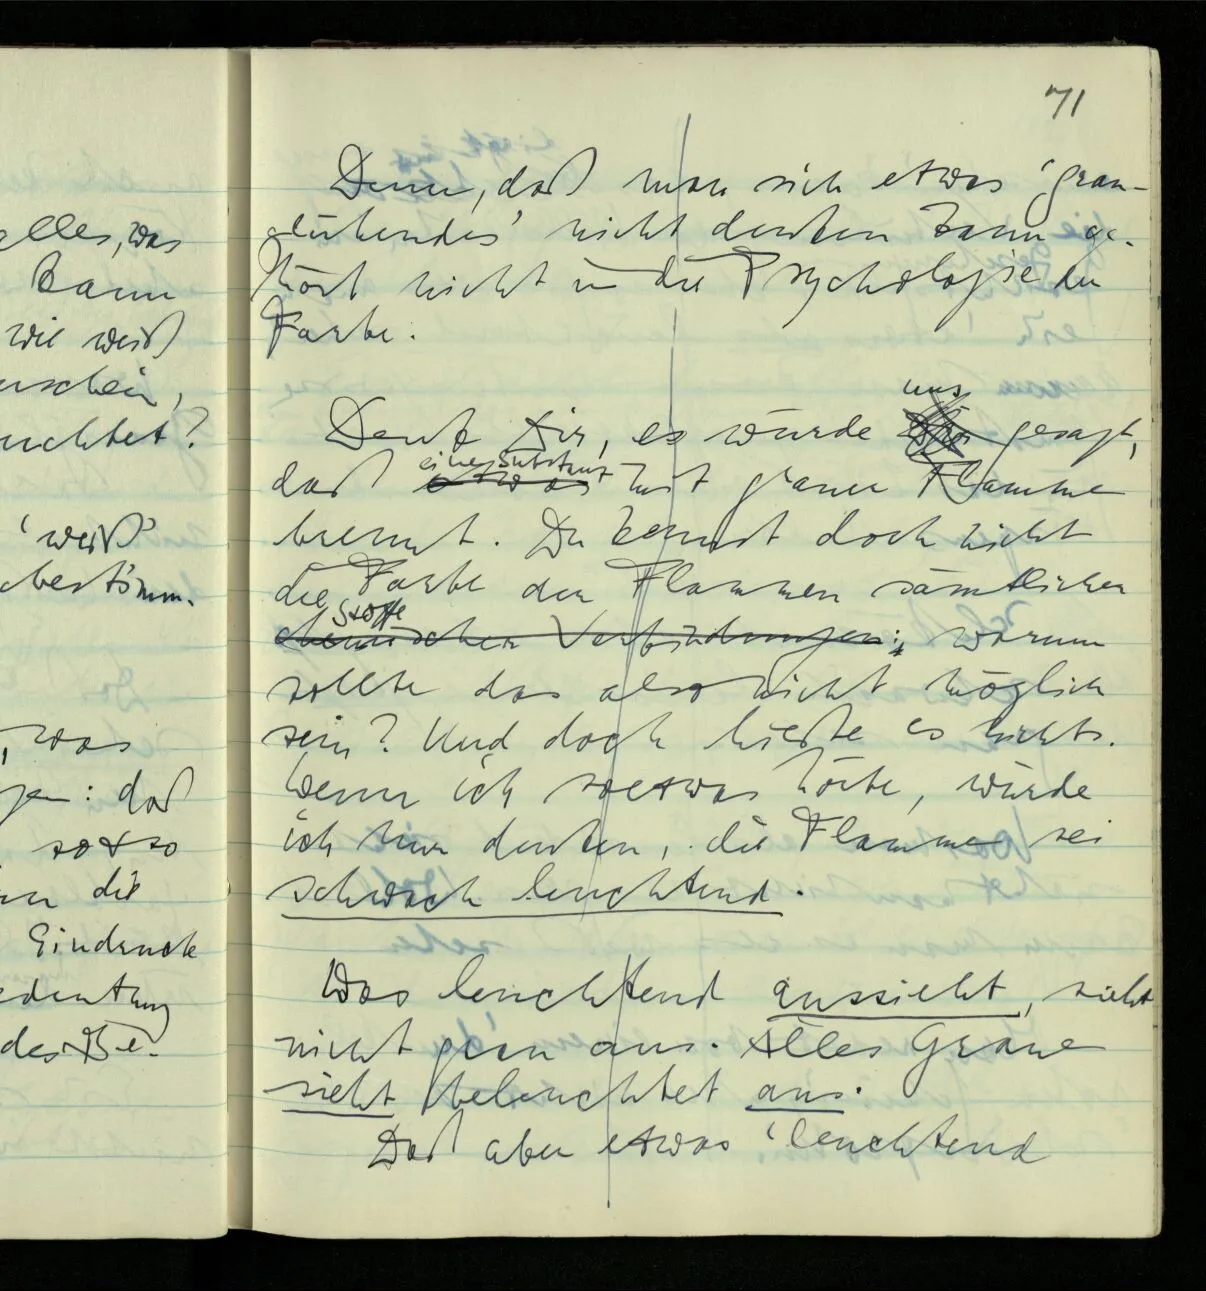 71
Denn, daß man sich etwas 'grau-
glühendes' nicht denken kann ge-
hört nicht in die Psychologie der
Farbe.
uns
Denk Dir, es würde gesagt,
eine Substanz
daß etwas mit grauer Flamme
brennt. Du kennst doch nicht
die Farbe der Flammen sämtlicher
Stoffe
chemischen Verbindungen; warum
sollte das also nicht möglich
sein? Und doch hieße es nichts.
Wenn ich soetwas hörte, würde
ich nur denken, die Flamme sei
schwach leuchtend.
Was leuchtend aussieht, sieht
nicht grau aus. Alles Graue
sieht beleuchtet aus.
Daß aber etwas 'leuchtend
alles, was
kann
wie weiß
schein,
uchtet?
'weiß'
bestimm-
, was
: daß
so & so
die
Eindruck
edeutung
des Be-